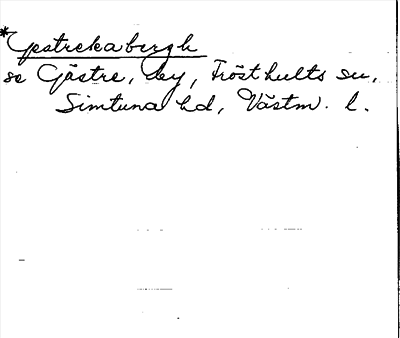 *Gestrekabergh
se Gästre, by, Frösthults sn,
Simtuna hd, Västm. l.